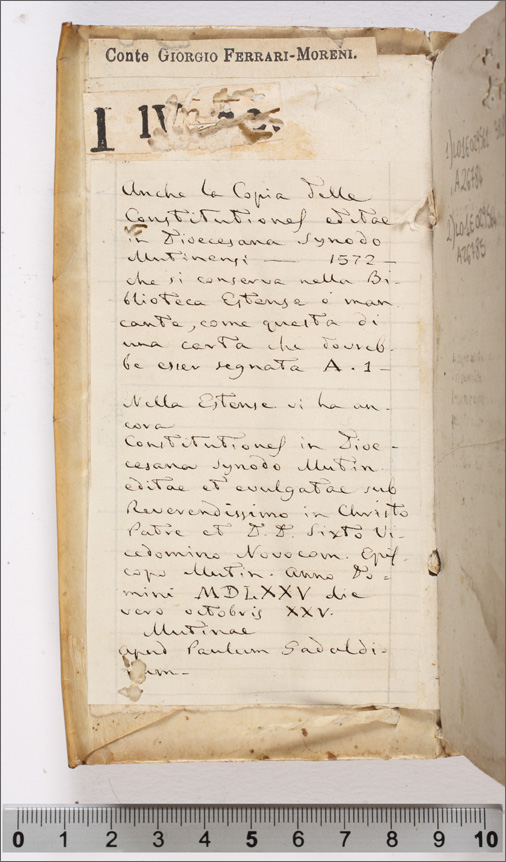 Conte GIORGIO FERRARI-MORENI.
I IV
Anche la Copia delle
Constitutiones editae
in Dioecesana Synodo
Mutinensi — 1572 —
che si conserva nella Bi-
blioteca Estense è man
cante, come questa di
una carta che dovreb-
be esser segnata A. 1 —
Nella Estense vi ha an-
cora
Constitutiones in Dioe-
cesana synodo Mutin.
editae et evulgatae sub
Reverendissimo in Christo
Patre et D. D. Sixto Vi-
cedomino Novocom. Epis-
copo Mutin. Anno Do-
mini MDLXXV die
vero octobris XXV.
Mutinae
apud Paulum Gadaldi-
num-
1)
A26784
2)
A26785
0 1 2 3 4 5 6 7 8 9 10